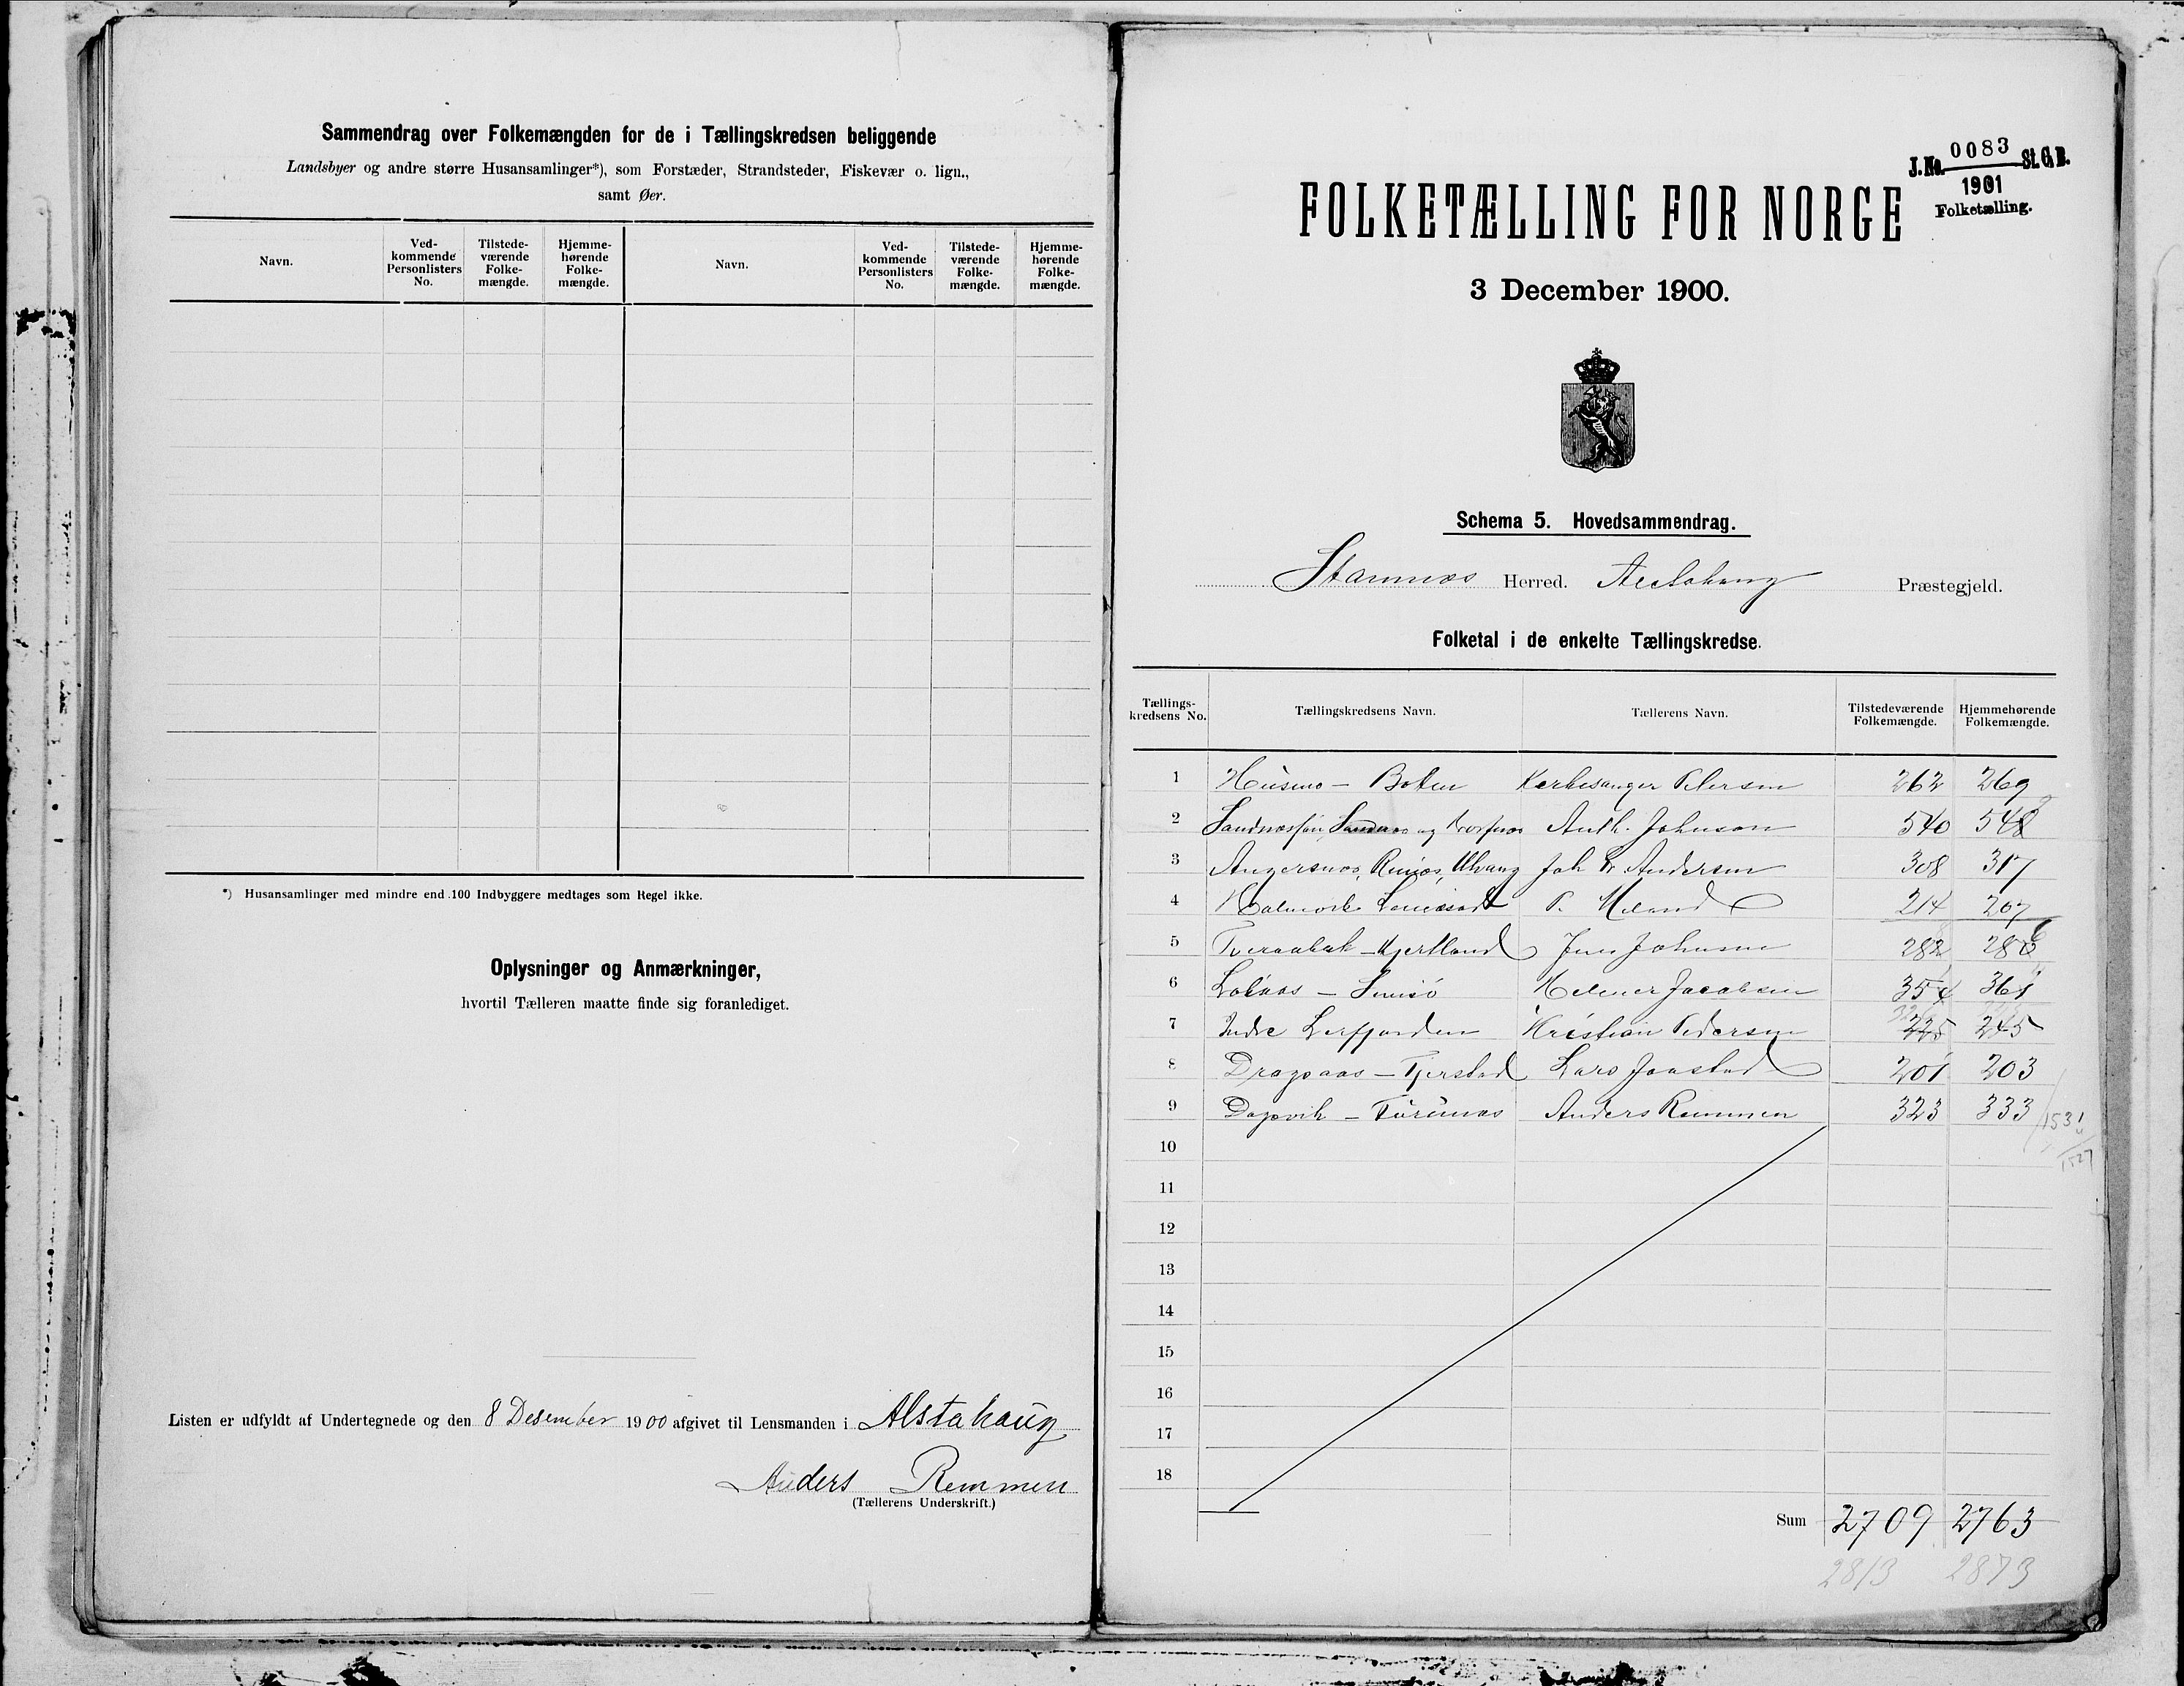 Sammendrag over Folkemængden for de i Tællingskredsen beliggende
Landsbyer og andre større Husansamlinger*), som Forstæder, Strandsteder, Fiskevær o. lign.,
samt Øer.
Navn. Ved-kommende Personlisters No. Tilstede-værende Folke-mængde. Hjemme-hørende Folke-mængde. Navn. Ved-kommende Personlisters No. Tilstede-værende Folke-mængde. Hjemme-hørende Folke-mængde.
*) Husansamlinger med mindre end 100 Indbyggere medtages som Regel ikke.
Oplysninger og Anmærkninger,
hvortil Tælleren maatte finde sig foranlediget.
Listen er udfyldt af Undertegnede og den 8 Desember 1900 afgivet til Lensmanden i Alstahaug
Anders Remmen
(Tællerens Underskrift.)
J.No. 0083 St.C.B.
1901
Folketælling.
FOLKETÆLLING FOR NORGE
3 December 1900.
Schema 5. Hovedsammendrag.
Stamnes Herred. Alstahaug Præstegjeld.
Folketal i de enkelte Tællingskredse.
Tællings-kredsens No. Tællingskredsens Navn. Tællerens Navn. Tilstedeværende Folkemængde. Hjemmehørende Folkemængde.
1 Husmo - Botten Kirkesanger Petersen 262 269
2 Sandnessjøen, Sandnes og Anth. Johnson 540 548
3 Angersnes, Ulvang Joh Andersen 308 317
4 P. Meland 214 207
5 Kjertland Jens Johnsen 282
6 Jacobsen 354 361
7 Indre Leirfjorden Kristian Pedersen 225 245
8 Dragsaas - Lars Jaastad 201 203
9 Dagsvik - Anders Remmen 323 333
1531
1527
10
11
12
13
14
15
16
17
18
Sum 2709 2763
2813 2873